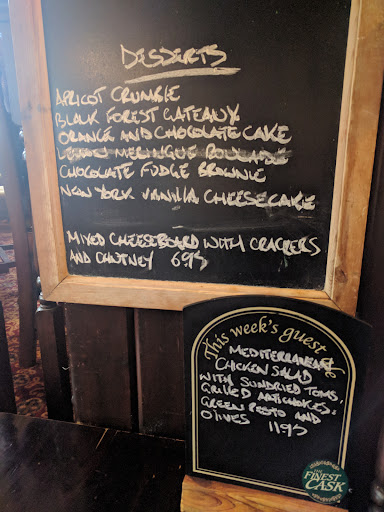 DESSERTS
APRICOT CRUMBLE
BLACK FOREST GATEAUX
ORANGE AND CHOCOLATE CAKE
LEMON MERINGUE ROULADE
CHOCOLATE FUDGE BROWNIE
NEW YORK VANILLA CHEESECAKE
MIXED CHEESEBOARD WITH CRACKERS
AND CHUTNEY 695
This week's guest
MEDITERRANEAN
CHICKEN SALAD
WITH SUNDRIED TOMS,
GRILLED ARTICHOKES,
GREEN PESTO AND
OLIVES 1195
THE
FINEST
CASK